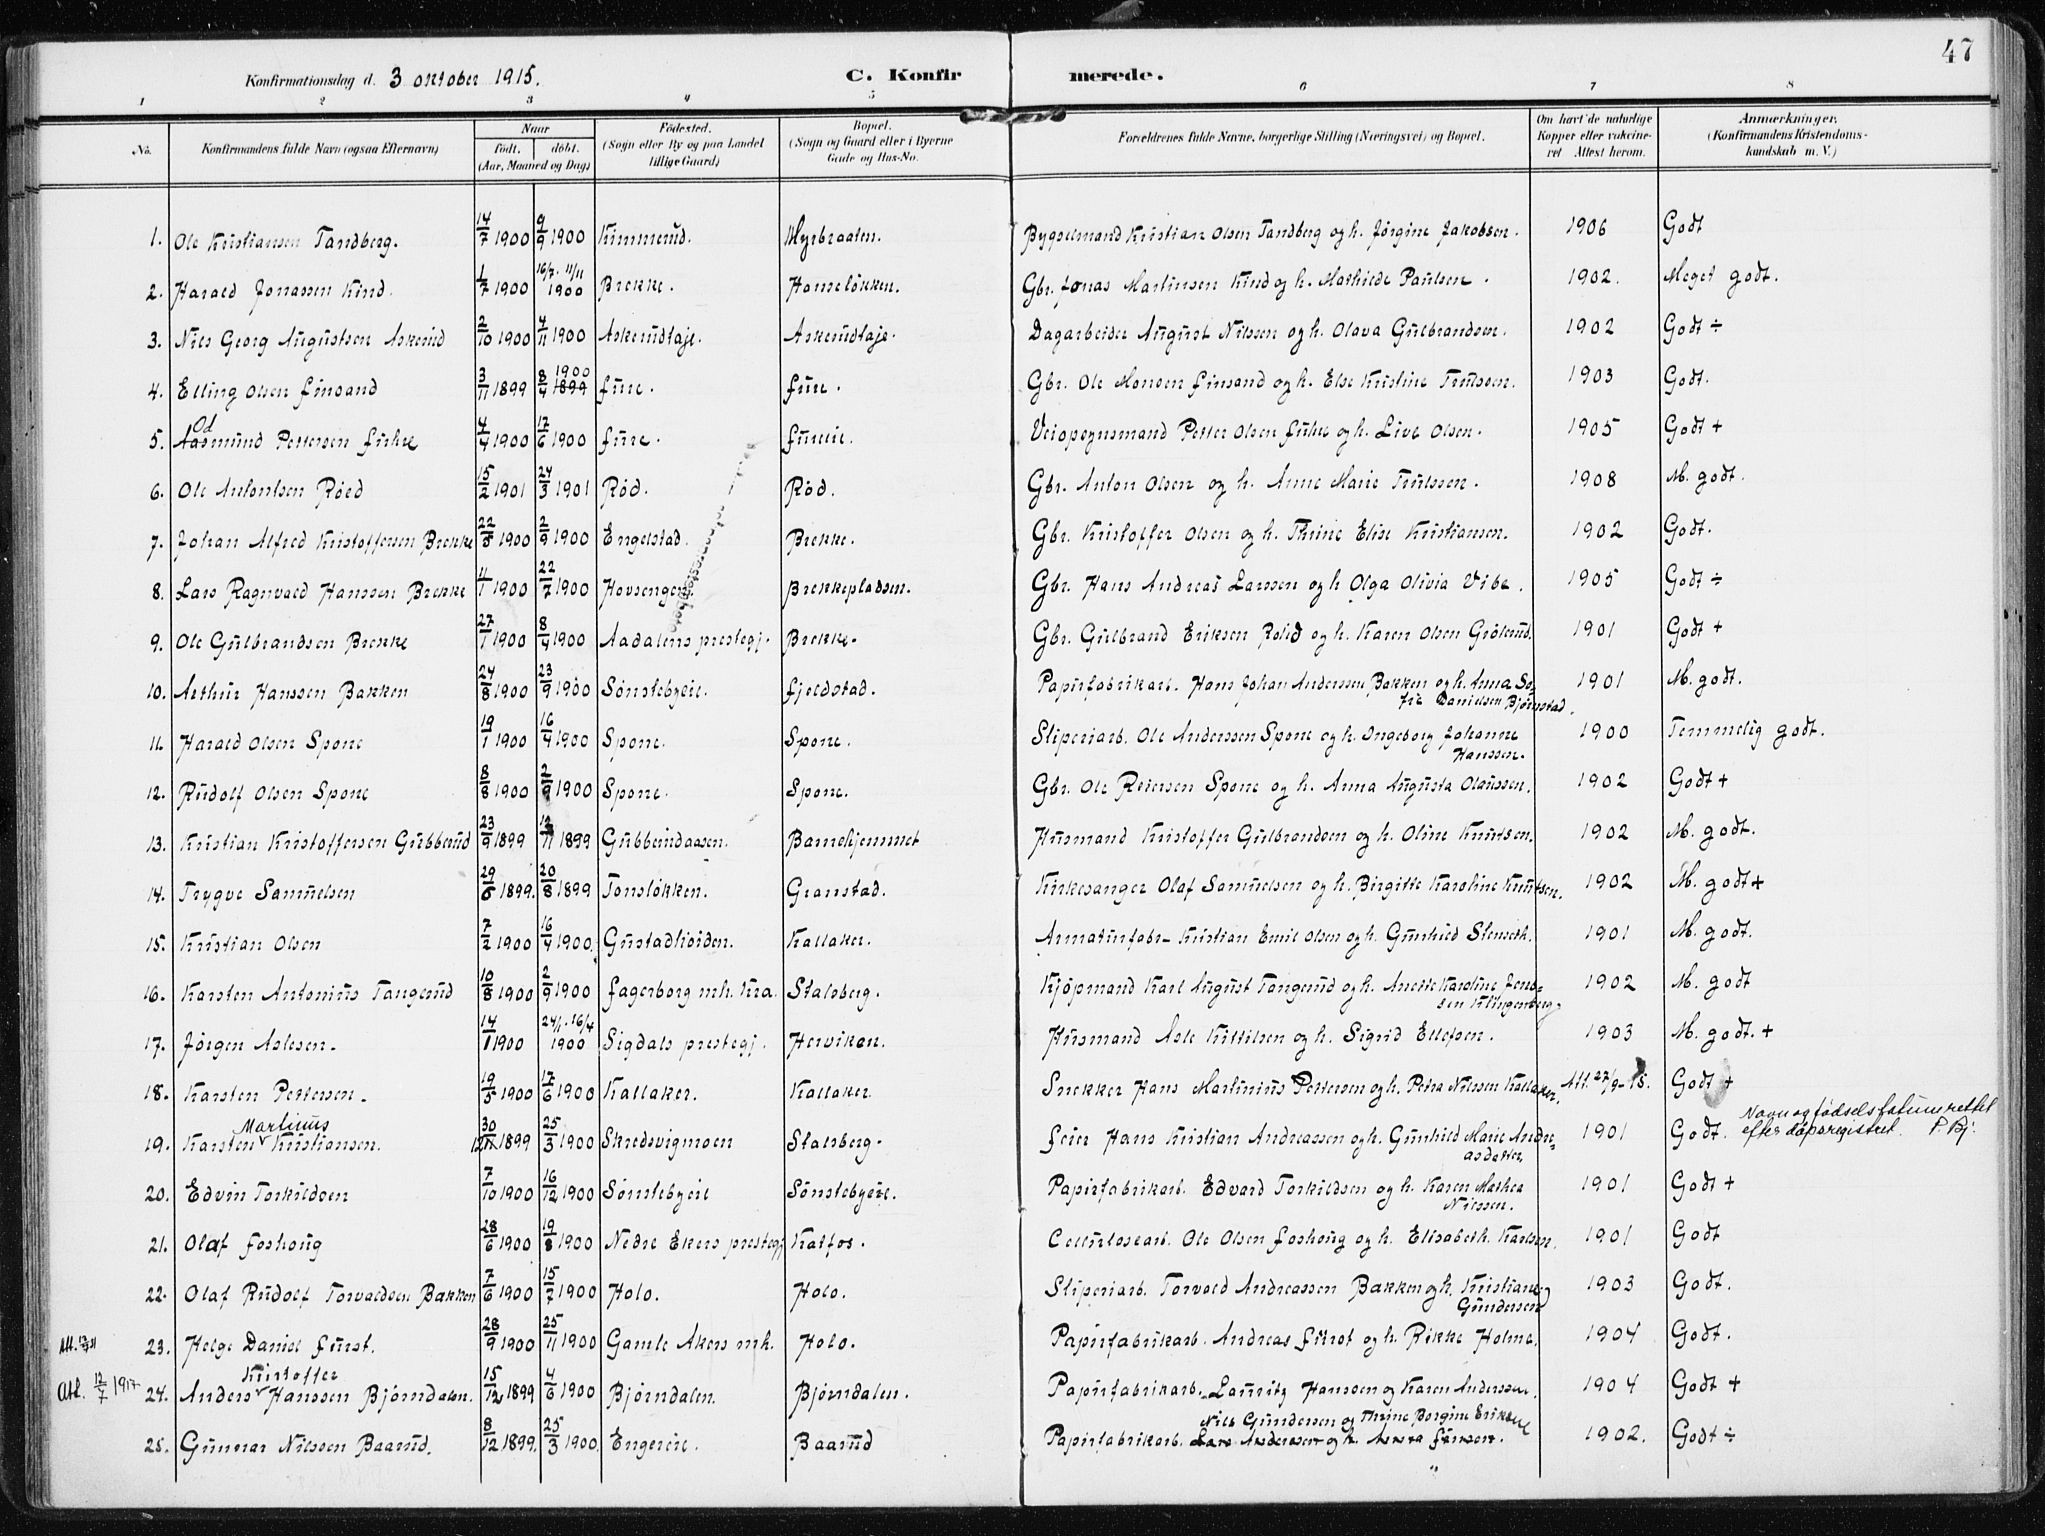 47
Konfirmationsdag d. 3 oktober 1915. C. Konfirmerede.
1 2 3 4 5 6 7 8
No. Konfirmandens fulde Navn (ogsaa Efternavn) Naar født. døbt. (Aar, Maaned og Dag) Fødested. (Sogn eller By og paa Landet tillige Gaard) Bopæl. (Sogn og Gaard eller i Byerne Gade og Hus-No. Forældrenes fulde Navne, borgerlige Stilling (Næringsvei) og Bopæl. Om havt de naturlige Kopper eller vakcineret Attest herom. Anmærkninger. (Konfirmandens Kristendomskundskab m. V.)
1. Ole Kristiansen Tandberg. 14/7 1900 9/9 1900 Kimmerud. Myrbraaten. Bygselmand Kristian Olsen Tandberg og h. Jørgine Jakobsen. 1906 Godt
2. Harald Jonassen Kind. 1/7 1900 16/7. 11/11 1900 Brekke. Hanseløkken. Gbr. Jonas Martinsen Kind og h. Mathilde Paulsen. 1902. Meget godt.
3. Nils Georg Augustsen Askerud 2/10 1900 4/11 1900 Askerudtaje. Askerudtaje. Dagarbeider August Nilssen og h. Olava Gulbrandsen. 1902 Godt ÷
4. Elling Olsen Finsand 3/11 1899 8/4 1900 1899 Fure. Fure. Gbr. Ole Monsen Finsand og h. Else Kristine Trulssen. 1903 Godt.
5. Od Aasmund Pettersen Fuhre 4/4 1900 17/6 1900 Fure. Fureeie. Veiopsynsmand Petter Olsen Fuhre og h. Live Olsen. 1905 Godt +
6. Ole Antontsen Røed 15/2 1901 24/3 1901 Rød. Rød. Gbr. Anton Olsen og h. Anne Marie Trulssen. 1908 M. godt.
7. Johan Alfred Kristoffersen Brekke 22/5 1900 2/9 1900 Engelstad. Brekke. Gbr. Kristoffer Olsen og h. Thrine Elise Kristiansen. 1902 Godt.
8. Lars Ragnvald Hanssen Brekke 4/1 1900 22/7 1900 Hovsengen Brekkepladsen. Gbr. Hans Andreas Larssen og h. Olga Olivia Vibe. 1905 Godt ÷
9. Ole Gulbrandsen Brekke 27/1 1900 8/4 1900 Aadalens prestegj. Brekke. Gbr. Gulbrand Eriksen Rolid og h. Karen Olsen Grølerud. 1901 Godt +
10. Arthur Hanssen Bakken 24/8 1900 23/9 1900 Sønstebyeie. Fjeldstad. Papirfabrikarb. Hans Johan Anderssen Bakken og h. Anna Sofie Danielsen Bjørnstad. 1901 M. godt.
11. Harald Olsen Spone 19/1 1900 16/4 1900 Spone. Spone. Sliperiarb. Ole Anderssen Spone og h. Ingeborg Johanne Hanssen. 1900 Temmelig godt.
12. Rudolf Olsen Spone 8/8 1900 2/9 1900 Spone. Spone. Gbr. Ole Reiersen Spone og h. Anna Augusta Olaussen. 1902 Godt +
13. Kristian Kristoffersen Gubberud 23/9 1899 12/11 1899 Gubberudaasen. Barnehjemmet Husmand Kristoffer Gulbrandsen og h. Oline Knutsen. 1902 M. godt.
14. Trygve Samuelsen 29/5 1899. 20/8 1899 Tonsløkken. Granstad. Kirkesanger Olaf Samuelsen og h. Birgitte Karoline Knutsen. 1902 M. godt +
15. Kristian Olsen 7/2 1900 16/4 1900. Gustadlioiden. Kallaker. Armaturfabr. Kristian Emil Olsen og h. Gunhild Slenseth. 1901 M. godt.
16. Karsten Antonius Tangerud 10/8 1900 2/9 1900 Fagerborg mh. Kra. Stalsberg. Kjøpmand Karl August Tangerud og h. Anette Karoline Jenssen Klingenberg. 1902 M. godt
17. Jørgen Aslesen. 14/1 1900 24/1. 16/4 1900 Sigdals prestegj. Herviken. Husmand Asle Kittilsen og h. Sigrid Ellefsen. 1903 M. godt. +
18. Karsten Pettersen. 19/5 1900 17/6 1900 Kallaker. Kallaker. Snekker Hans Martinius Pettersen og h. Petra Nilssen Kallaker. Att. 27/9-15. Godt +
19. Karsten Martinus Kristiansen. 30/12 1899 25/3 1900 Skredsvigmoen Stalsberg. Feier Hans Kristian Andreassen og h. Gunhild Marie Andreasdatter. 1901 Godt. Navn og fødselsdatum rettet efter døpsregistret. P. Bj.
20. Edvin Torkildsen 7/10 1900 16/12 1900 Sønstebyeie Sønstebyeie. Papirfabrikarb. Edvard Torkildsen og h. Karen Mathea Nilssen. 1901 Godt +
21. Olaf Foshoug 28/6 1900 19/8 1900 Nedre Ekers prestegj Katfos. Celluloseearb. Ole Olsen Foshoug og h. Elisabeth Karlsen. 1901 Godt
22. Olaf Rudolf Torvaldsen Bakken 7/6 1900 15/7 1900 Holo. Holo. Sliperiarb. Torvald Andreassen Bakken og h. Kristiane Gundersen 1903 Godt.
23. Helge Daniel Furst. 28/9 1900 25/11 1900 Gamle Akers mh. Holo. Papirfabrikarb. Andreas Furst og h. Rikke Holme. 1904 Godt.
Att. 12/7 1917 24. Anders Kristoffer Hanssen Bjørndalen. 15/12 1899 4/6 1900 Bjørndalen. Bjørndalen. Papirfabrikarb. Lauritz Hanssen og Karen Anderssen. 1904 Godt +
25. Gunnar Nilssen Baarud. 8/12 1899. 25/3 1900. Engereie. Baarud Papirfabrikarb. Nils Gundersen og Thrine Borgine Eriksene Lars Anderssen og h. Anna Jensen. 1902. Godt ÷